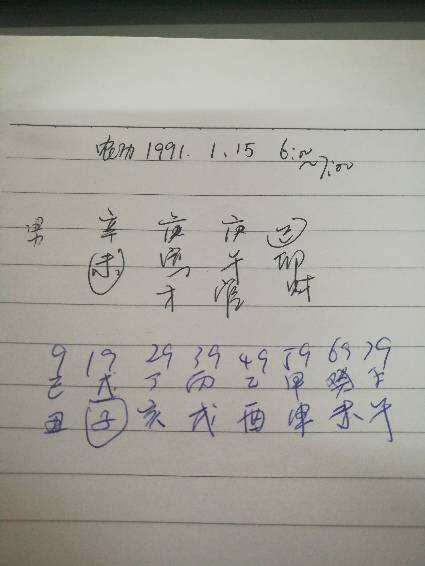 农历 1991. 1.15 6:00~7:00
男 辛 庚 庚 己
未 寅 午 卯
才 官 财
9 19 29 39 49 59 69 79
己 戊 丁 丙 乙 甲 癸 壬
丑 子 亥 戌 酉 申 未 午